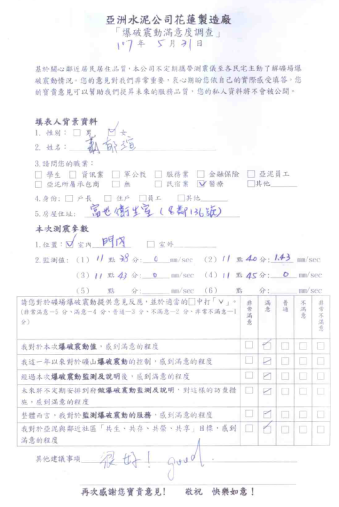 亞洲水泥公司花蓮製造廠
「爆破震動滿意度調查」
107年 5月31日
基於關心鄰近居民居住品質，本公司不定期攜帶測震儀至各民宅主動了解礦場爆
破震動情況，您的意見對我們非常重要，良心期盼您依自己的實際感受填答，您
的寶貴意見可以幫助我們提昇未來的服務品質，您的私人資料將不會被公開。
填表人背景資料
1. 性別：□ 男 ☑ 女
2. 姓名：
3. 請問您的職業：
□ 學生 □ 資訊業 □ 軍公教 □ 服務業 □ 金融保險 □ 亞泥員工
□ 亞泥所屬承包商 □ 無 □ 民宿業 ☑ 醫療 □其他
4. 身份：□ 戶長 □ 住戶 □員工 □其他
5. 房屋住址：富世衛生室
本次測震參數
1. 位置：☑ 室內 門內 □ 室外
2. 監測值：(1) 11 點 39 分: 0 mm/sec (2) 11 點 40 分: 1.43 mm/sec
(3) 11 點 43 分: 0 mm/sec (4) 11 點 45 分: 0 mm/sec
(5) 點 分: mm/sec (6) 點 分: mm/sec
請您對於礦場爆破震動提供意見反應，並於適當的□中打「ˇ」。
(非常滿意－5 分、滿意－4 分、普通－3 分、不滿意－2 分、非常不滿意－1
分)
非常滿意 滿意 普通 不滿意 非常不滿意
我對於本次爆破震動值，感到滿意的程度 □ ☑ □ □ □
我這一年以來對於礦山爆破震動的控制，感到滿意的程度 □ ☑ □ □ □
經過本次爆破震動監測及說明後，感到滿意的程度 □ ☑ □ □ □
未來將不定期安排到府做爆破震動監測及說明，對這樣的訪查措
施，感到滿意的程度 □ ☑ □ □ □
整體而言，我對於監測爆破震動的服務，感到滿意的程度 □ ☑ □ □ □
我對於亞泥與鄰近社區「共生、共存、共榮、共享」目標，感到
滿意的程度 □ ☑ □ □ □
其他建議事項 很好！ good.
再次感謝您寶貴意見！ 敬祝 快樂如意！